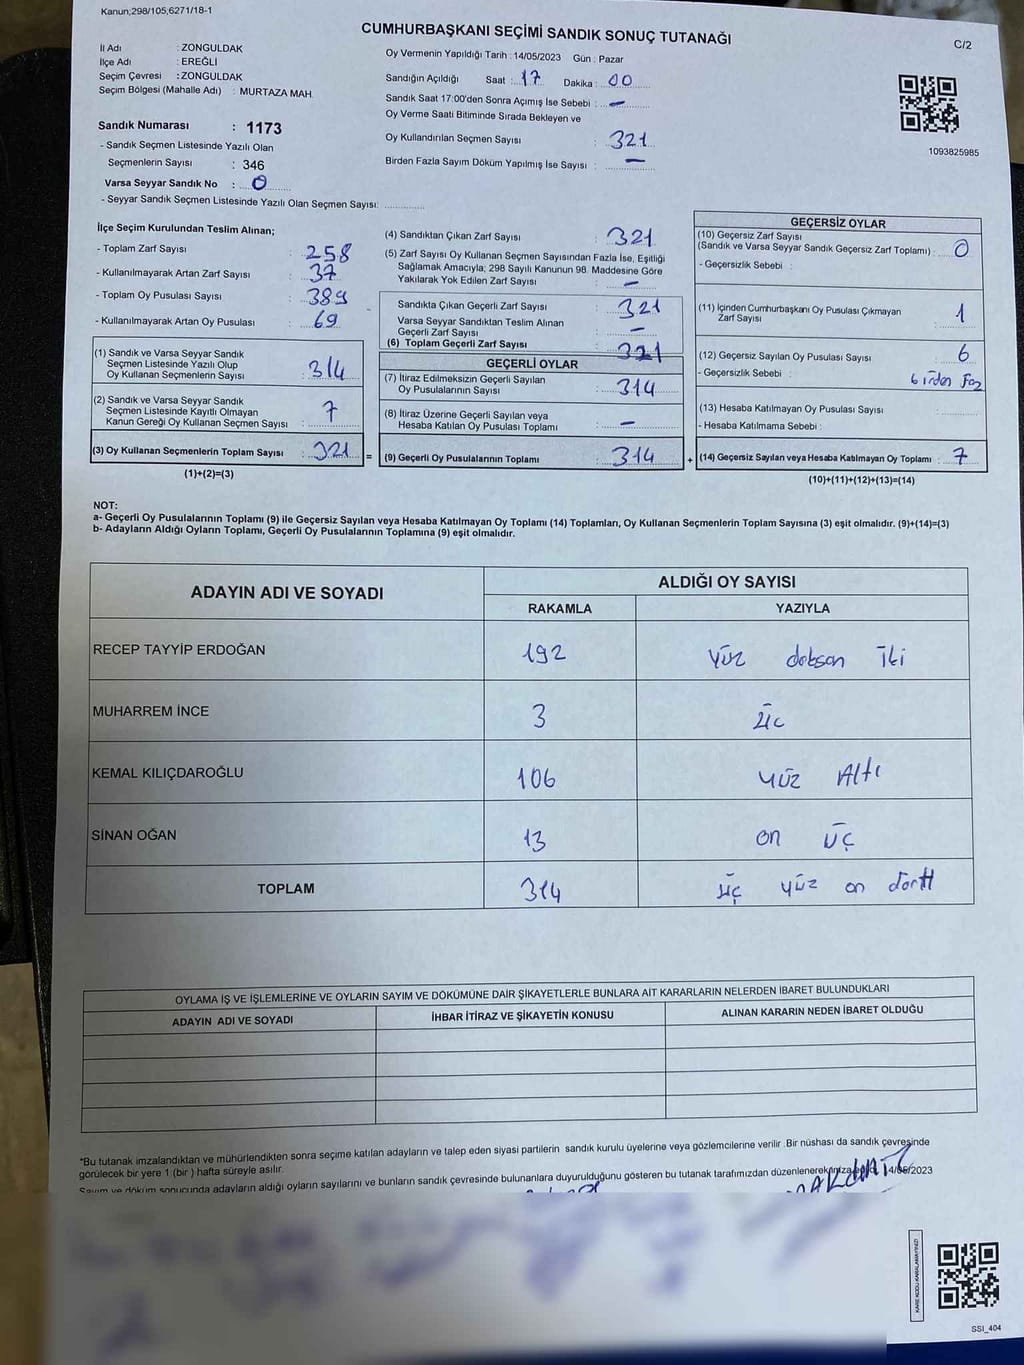 Kanun;298/105,6271/18-1
CUMHURBAŞKANI SEÇİMİ SANDIK SONUÇ TUTANAĞI
C/2
İl Adı : ZONGULDAK
İlçe Adı : EREĞLİ
Seçim Çevresi : ZONGULDAK
Seçim Bölgesi (Mahalle Adı) : MURTAZA MAH.
Sandık Numarası : 1173
- Sandık Seçmen Listesinde Yazılı Olan
Seçmenlerin Sayısı : 346
Varsa Seyyar Sandık No : 0
- Seyyar Sandık Seçmen Listesinde Yazılı Olan Seçmen Sayısı:
Oy Vermenin Yapıldığı Tarih : 14/05/2023 Gün : Pazar
Sandığın Açıldığı Saat : 17 Dakika : 00
Sandık Saat 17:00'den Sonra Açımış İse Sebebi : -
Oy Verme Saati Bitiminde Sırada Bekleyen ve
Oy Kullandırılan Seçmen Sayısı : 321
Birden Fazla Sayım Döküm Yapılmış İse Sayısı : -
1093825985
İlçe Seçim Kurulundan Teslim Alınan;
- Toplam Zarf Sayısı : 258
- Kullanılmayarak Artan Zarf Sayısı : 37
- Toplam Oy Pusulası Sayısı : 389
- Kullanılmayarak Artan Oy Pusulası : 69
(1) Sandık ve Varsa Seyyar Sandık
Seçmen Listesinde Yazılı Olup
Oy Kullanan Seçmenlerin Sayısı : 314
(2) Sandık ve Varsa Seyyar Sandık
Seçmen Listesinde Kayıtlı Olmayan
Kanun Gereği Oy Kullanan Seçmen Sayısı : 7
(3) Oy Kullanan Seçmenlerin Toplam Sayısı : 321 =
(1)+(2)=(3)
(4) Sandıktan Çıkan Zarf Sayısı : 321
(5) Zarf Sayısı Oy Kullanan Seçmen Sayısından Fazla İse, Eşitliği
Sağlamak Amacıyla; 298 Sayılı Kanunun 98. Maddesine Göre
Yakılarak Yok Edilen Zarf Sayısı : -
Sandıkta Çıkan Geçerli Zarf Sayısı : 321
Varsa Seyyar Sandıktan Teslim Alınan
Geçerli Zarf Sayısı : -
(6) Toplam Geçerli Zarf Sayısı : 321
GEÇERLİ OYLAR
(7) İtiraz Edilmeksizin Geçerli Sayılan
Oy Pusulalarının Sayısı : 314
(8) İtiraz Üzerine Geçerli Sayılan veya
Hesaba Katılan Oy Pusulası Toplamı : -
(9) Geçerli Oy Pusulalarının Toplamı : 314 +
GEÇERSİZ OYLAR
(10) Geçersiz Zarf Sayısı
(Sandık ve Varsa Seyyar Sandık Geçersiz Zarf Toplamı) : 0
- Geçersizlik Sebebi :
(11) İçinden Cumhurbaşkanı Oy Pusulası Çıkmayan
Zarf Sayısı : 1
(12) Geçersiz Sayılan Oy Pusulası Sayısı : 6
- Geçersizlik Sebebi : birden Faz
(13) Hesaba Katılmayan Oy Pusulası Sayısı :
- Hesaba Katılmama Sebebi :
(14) Geçersiz Sayılan veya Hesaba Katılmayan Oy Toplamı : 7
(10)+(11)+(12)+(13)=(14)
NOT:
a- Geçerli Oy Pusulalarının Toplamı (9) ile Geçersiz Sayılan veya Hesaba Katılmayan Oy Toplamı (14) Toplamları, Oy Kullanan Seçmenlerin Toplam Sayısına (3) eşit olmalıdır. (9)+(14)=(3)
b- Adayların Aldığı Oyların Toplamı, Geçerli Oy Pusulalarının Toplamına (9) eşit olmalıdır.
ADAYIN ADI VE SOYADI
ALDIĞI OY SAYISI
RAKAMLA YAZIYLA
RECEP TAYYİP ERDOĞAN 192 yüz doksan iki
MUHARREM İNCE 3 üc
KEMAL KILIÇDAROĞLU 106 yüz Altı
SİNAN OĞAN 13 on üç
TOPLAM 314 üç yüz on dörtt
OYLAMA İŞ VE İŞLEMLERİNE VE OYLARIN SAYIM VE DÖKÜMÜNE DAİR ŞİKAYETLERLE BUNLARA AİT KARARLARIN NELERDEN İBARET BULUNDUKLARI
ADAYIN ADI VE SOYADI İHBAR İTİRAZ VE ŞİKAYETİN KONUSU ALINAN KARARIN NEDEN İBARET OLDUĞU
*Bu tutanak imzalandıktan ve mühürlendikten sonra seçime katılan adayların ve talep eden siyasi partilerin sandık kurulu üyelerine veya gözlemcilerine verilir .Bir nüshası da sandık çevresinde
görülecek bir yere 1 (bir ) hafta süreyle asılır.
Sayım ve döküm sonucunda adayların aldığı oyların sayılarını ve bunların sandık çevresinde bulunanlara duyurulduğunu gösteren bu tutanak tarafımızdan düzenlenerek 14/05/2023
KARE KODU KARALAMAYINIZ!
SSI_404